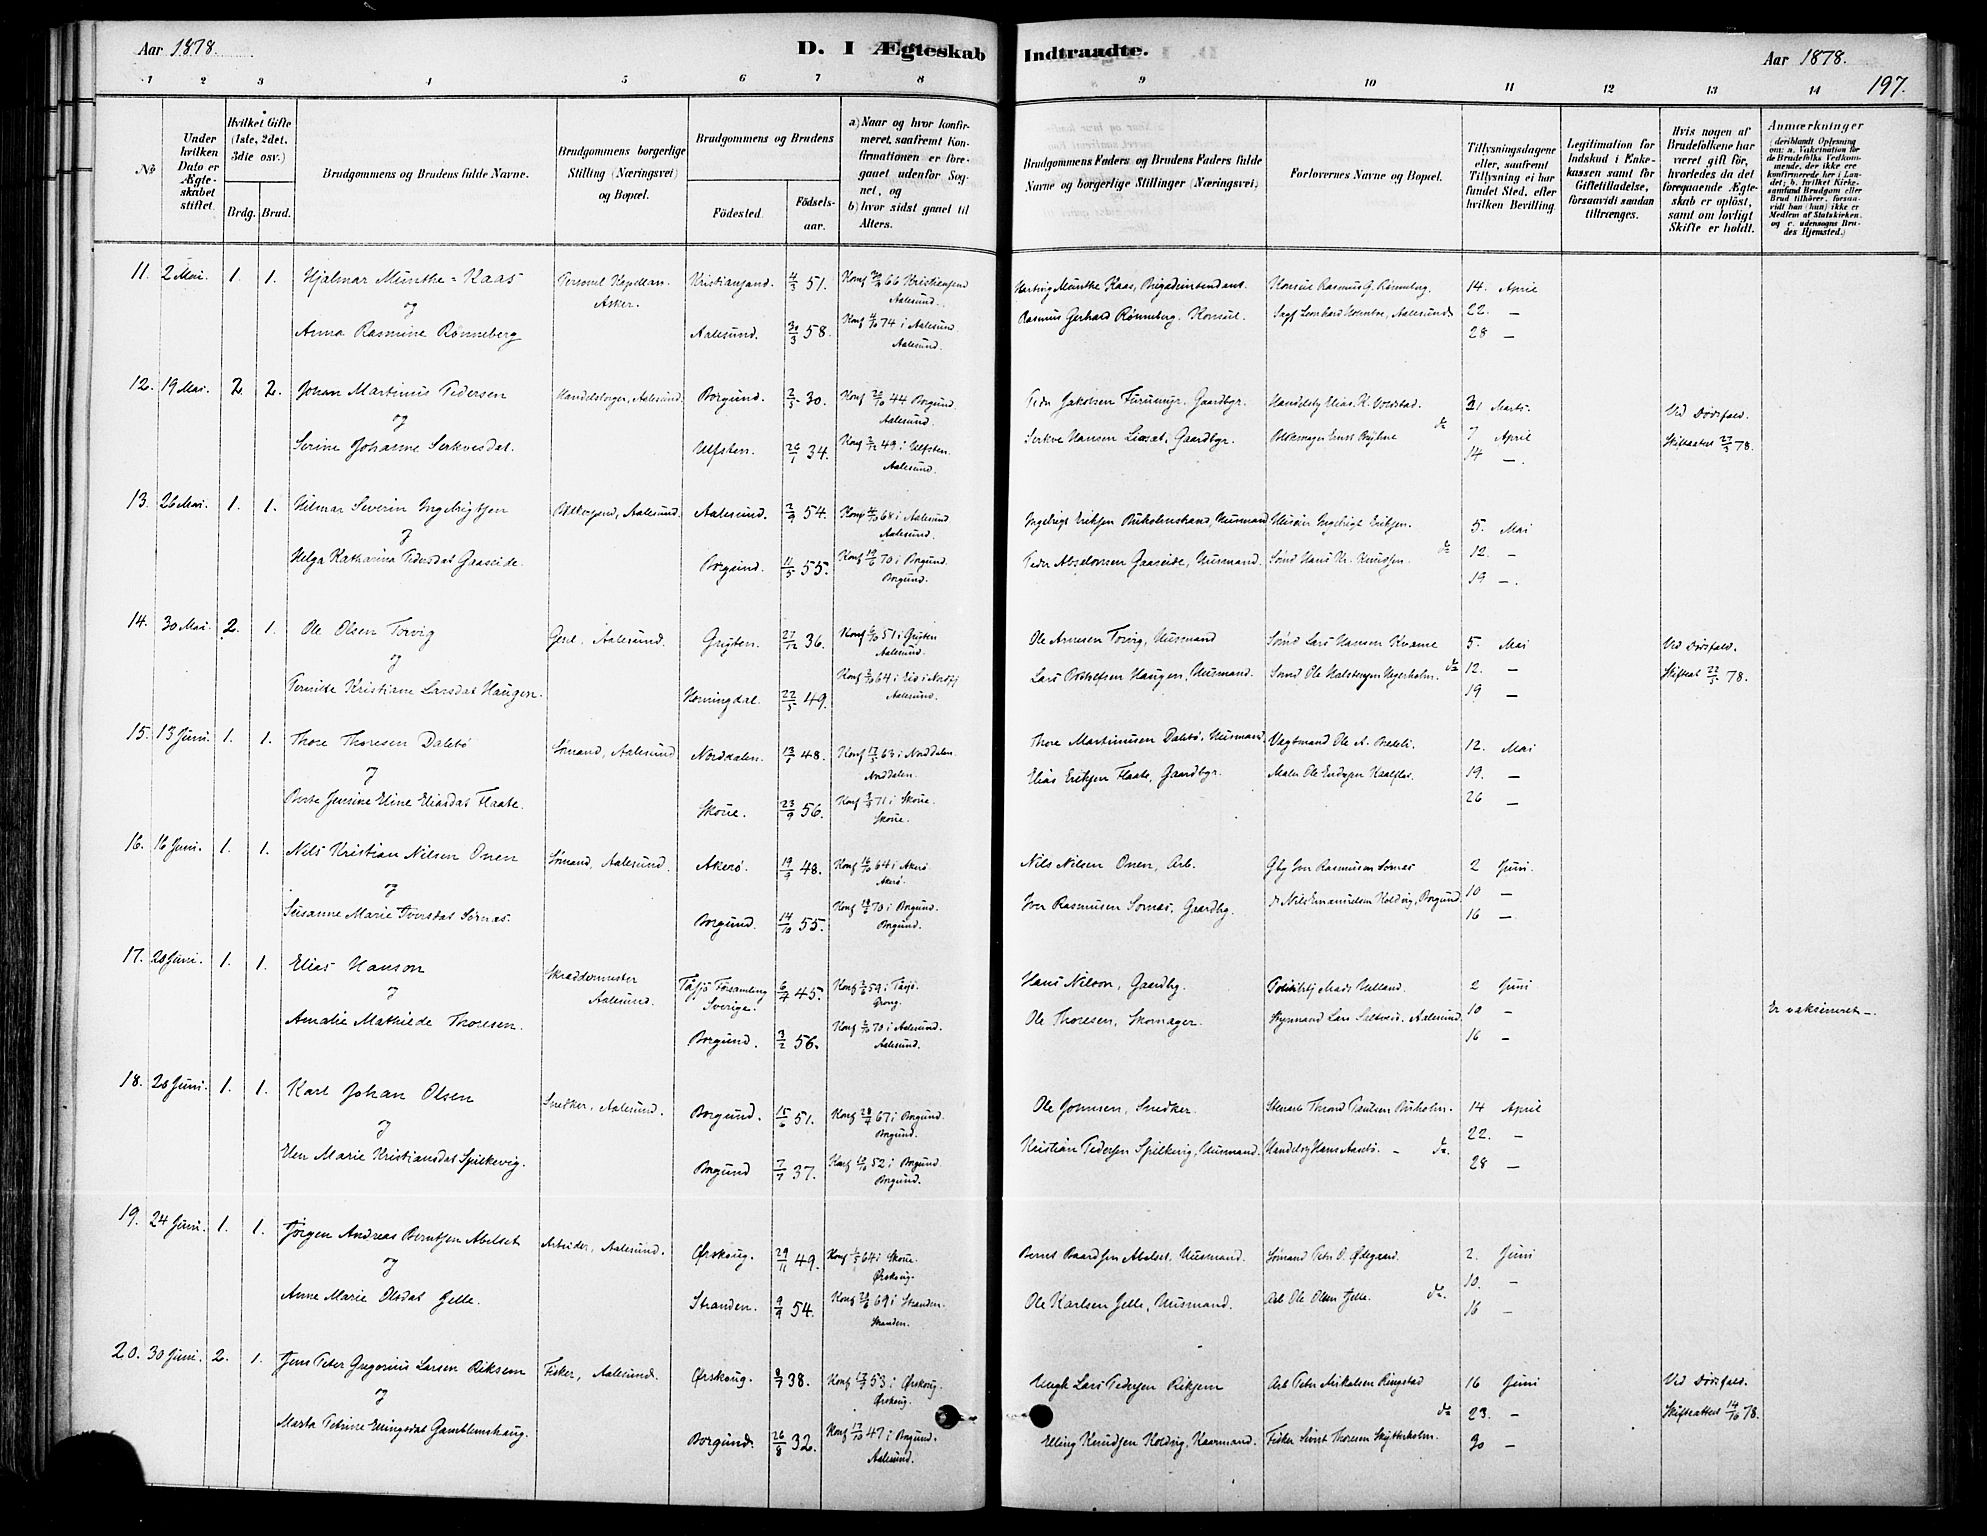 Aar 1878.
D. I Ægteskab Indtraadte.
Aar 1878.
197.
1 2 3 4 5 6 7 8 9 10 11 12 13 14
No
Under hvilken Dato er Ægteskabet stiftet.
Hvilket Gifte (1ste, 2det, 3die osv.)
Brdg. Brud.
Brudgommens og Brudens fulde Navne.
Brudgommens borgerlige Stilling (Næringsvei) og Bopæl.
Brudgommens og Brudens
Fødested. Fødselsaar.
a) Naar og hvor konfirmeret, saafremt Konfirmationen er foregaaet udenfor Sognet, og
b) hvor sidst gaaet til Alters.
Brudgommens Faders og Brudens Faders fulde Navne og borgerlige Stillinger (Næringsvei)
Forlovernes Navne og Bopæl.
Tillysningsdagene eller, saafremt Tillysning ei har fundet Sted, efter hvilken Bevilling.
Legitimation for Indskud i Enkekassen samt for Giftetilladelse, forsaavidt saadan tiltrænges.
Hvis nogen af Brudefolkene har været gift før, hvorledes da det foregaaende Ægteskab er opløst, samt om lovligt Skifte er holdt.
Anmærkninger (deriblandt Oplysning om: a. Vakcination for de Brudefolks Vedkommende, der ikke ere konfirmerede her i Landet; b. hvilket Kirkesamfund Brudgom eller Brud tilhører, forsaavidt han (hun) ikke er Medlem af Statskirken, og c. udensogns Brudes Hjemsted.)
11. 2 Mai. 1. 1. Hjalmar Munthe-Kaas Personel Kapellan Kristiansand. 4/3 51. Konf 66 Kristiansand Hartvig Munthe Kaas, Brigadeintendant. Konsul Rasmus G. Rønneberg. 14. April
og Asker. Aalesund.
Anna Rasmine Rønneberg Aalesund. 30/3 58. Konf 74 i Aalesund Rasmus Gerhard Rønneberg. Konsul. 22. —
Aalesund. 28 —
12. 19 Mai. 2. 2. Johan Martinus Pedersen Handelsborger, Aalesund. Borgund. 2/5 30. Konf 44 Borgund. Peder Jakobsen Furmyr. Gaardbr. 31 Marts.
og Aalesund. Ved Dødsfald.
Serine Johanne Serkvesdat. Ulfsten. 26/1 34. Konf 49 i Ulfsten. Serkve Hansen Liaset, Gaardbr. 7 April Skifteattest 27/3 78.
Aalesund. 14 —.
13. 26 Mai. 1. 1. Hilmar Severin Ingebrigtsen Aalesund. 2/9 54. Konf 68 i Aalesund Husmand Husm. Ingebrigt Eriksen. 5. Mai
og Aalesund.
Helga Katharina Pedersdat Gaaseide. Borgund. 11/5 55. Konf 70 i Borgund. Peder Absalonsen Gaaseide, Husmand. Sømd Hans Kr. Knudsen. 12. —
Borgund. 19 —.
14. 30 Mai. 2. 1. Ole Olsen Torvig Aalesund. Gryten. 27/12 36. Konf 51 i Gryten Ole Arnesen Torvig, Husmand Sømd Lars Hansen Kvamme 5. Mai Ved Dødsfald.
og Aalesund.
Pernille Kristiane Larsdat Haugen. Horningdal. 22/5 49. Konf 64 i Eid i Nordfj Lars Haugen, Husmand. 12. — Skifteat 22/5 78.
Aalesund. 19 —
15. 13 Juni. 1. 1. Thore Thoresen Dalebø Sømand, Aalesund. Norddalen. 13/1 48. Konf 63 i Norddalen. Thore Martinusen Dalebø, Husmand. Vagtmand Ole A. 12. Mai
og Norddalen.
Berte Jensine Eline Eliasdat Flaate. Skoue. 23/9 56. Konf 71 i Skoue. Elias Eriksen Flaate, Gaardbr. Maler Ole 19. —
Skoue. 26 —
16. 16 Juni. 1. 1. Nils Kristian Nilsen Onen Sømand, Aalesund. Akerø. 19/9 48. Konf 64 i Akerø Nils Nilsen Onen, Arb. Gbr Iver Rasmusen Sornæs 2 Juni.
og Akerø.
Susanne Marie Iversdat Sornæs. Borgund. 14/10 55. Konf 70 i Borgund. Iver Rasmusen Sornæs, Gaardbr. Nils Emanuelsen Holdvig, Borgund. 10 —
Borgund. 16 —
17. 20 Juni. 1. 1. Elias Hanson Skræddermester Tåsjö Församling 6/7 45. Konf 59 i Tåsjö. Hans Nilson, Gaardbr. Mads Helland. 2 Juni
og Aalesund. Sverige. Grong. Er vaksineret —.
Amalie Mathilde Thoresen. Borgund. 3/2 56. Konf 70 i Aalesund. Ole Thoresen, Skomager. Styrmand Lars Aalesund. 10 —
Aalesund. 16 —
18. 20 Juni. 1. 1. Karl Johan Olsen Snedker, Aalesund. Borgund. 15/6 51. Konf 67 i Borgund. Ole Johnsen, Snedker. Thrond Paulsen Buholm. 14 April
og Borgund.
Elen Marie Kristiansdat Spilkevig. Borgund 7/7 37. Konf 52 i Borgund. Kristian Pedersen Spilkevig, Husmand. Hans Aasebø. — do. 22. —
Borgund. 28 —
19. 24 Juni. 1. 1. Jørgen Andreas Berntsen Abelset Arbeider, Aalesund. Ørskoug. 29/11 49. Konf 64 i Skoue. Bernt Baardsen Abelset. Husmand. Sømand Peter O. Ødegaard. 2. Juni
og Ørskoug.
Anne Marie Olsdat Gjelle. Stranden. 9/9 54. Konf 69 i Stranden. Ole Karlsen Gjelle, Husmand. Arb Ole Olsen Gjelle. do. 10. —
Stranden. 16 —
20. 30 Juni. 2. 1. Jens Peter Gregorius Larsen Riksem Fisker, Aalesund. Ørskoug. 8/7 38. Konf 53 i Ørskoug. Ungk Lars Pedersen Riksem Arb Petr Mikalsen Ringstad 16 Juni Ved Dødsfald.
og Ørskoug. do 23. — Skifteattest 14/6 78.
Marta Petrine Ellingsdat Gamblemshaug. Borgund. 26/8 32. Konf 47 i Borgund. Elling Knudsen Holdvig, Kaarmand. Fisker Sivert Thoresen Skytterholm. 30 —
Aalesund.